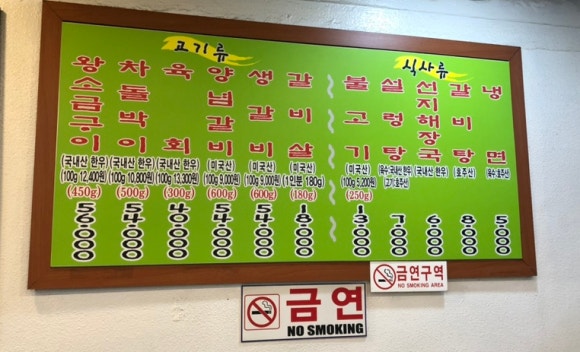 고기류
왕소금구이
(국내산 한우)
(100g 12,400원)
(450g)
56,000
차돌박이
(국내산 한우)
(100g 10,800원)
(500g)
54,000
육회
(국내산 한우)
(100g 13,300원)
(300g)
40,000
양념갈비
(미국산)
(100g 9,000원)
(600g)
54,000
생갈비
(미국산)
(100g 9,000원)
(600g)
54,000
갈비살
(미국산)
(1인분 180g)
(180g)
8,000
식사류
불고기
(미국산)
(100g 5,200원)
(250g)
13,000
설렁탕
(육수:국내산 한우)
(고기:호주산)
7,000
선지해장국
(국내산 한우)
6,000
갈비탕
(호주산)
8,000
냉면
(육수:호주산)
5,000
금연구역
NO SMOKING AREA
금연
NO SMOKING